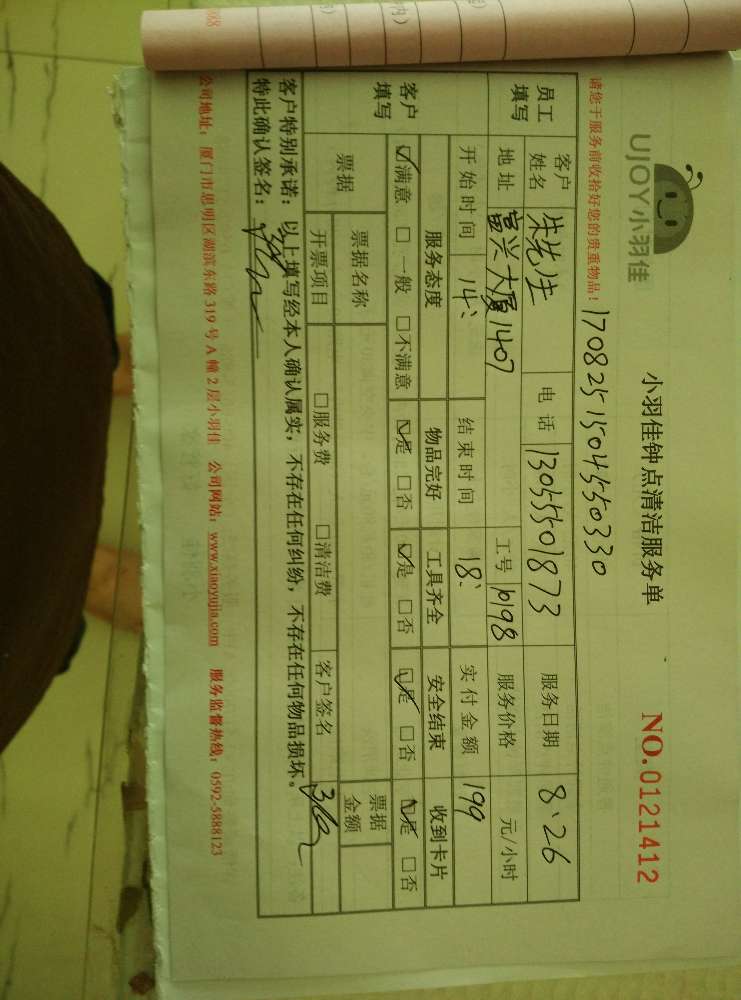 UJOY小羽佳
小羽佳钟点清洁服务单
NO.0121412
请您于服务前收拾好您的贵重物品！
1708251504550330
员工填写
客户姓名 朱先生 电话 13055501873 服务日期 8.26
地址 富兴大厦1407 工号 10198 服务价格 元/小时
开始时间 14: 结束时间 18: 实付金额 199
客户填写
服务态度 物品完好 工具齐全 安全结束 收到卡片
☑满意 □一般 □不满意 ☑是 □否 ☑是 □否 ☑是 □否 ☑是 □否
票据 票据名称 票据金额
开票项目 □服务费 □清洁费 客户签名
客户特别承诺：以上填写经本人确认属实，不存在任何纠纷，不存在任何物品损坏。
特此确认签名：
公司地址：厦门市思明区湖滨东路319号A幢2层小羽佳 公司网站：www.xiaoyujia.com 服务监督热线：0592-5888123